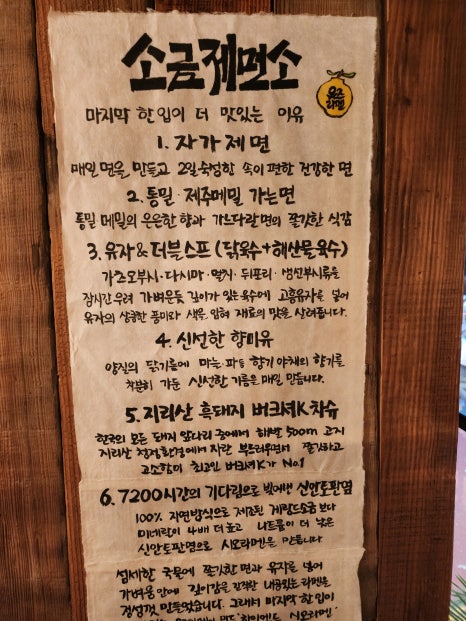 소금제면소
유즈
라멘
마지막 한입이 더 맛있는 이유
1. 자가제면
매일 면을 만들고 2일 숙성한 속이 편한 건강한 면
2. 통밀·제주메밀 가는면
통밀 메밀의 은은한 향과 가느다란 면의 쫄깃한 식감
3. 유자&더블스프 (닭육수+해산물육수)
가츠오부시·다시마·멸치·뒤포리·생선부시류를
장시간 우려 가벼운듯 깊이가 있는 육수에 고흥유자를 넣어
유자의 상큼한 풍미와 색을 입혀 재료의 맛을 살려줍니다.
4. 신선한 향미유
양질의 닭기름에 마늘·파등 향기야채의 향기를
차분히 가둔 신선한 기름을 매일 만듭니다.
5. 지리산 흑돼지 버크셔K차슈
한국의 모든 돼지 앞다리 중에서 해발 500m 고지
지리산 청정환경에서 자란 부드러우면서 쫄깃하고
고소함이 최고인 버크셔K가 No.1
6. 7200시간의 기다림으로 빚어낸 신안토판염
100% 자연방식으로 제조된 게랑드소금 보다
미네랄이 4배 더 높고 나트륨이 더 낮은
신안토판염으로 시오라멘을 만듭니다
섬세한 국물에 쫄깃한 면과 유자를 넣어
가벼움 안에 깊이감을 간직한 내공있는 라멘을
정성껏 만들었습니다. 그래서 마지막 한입이
시오라멘·